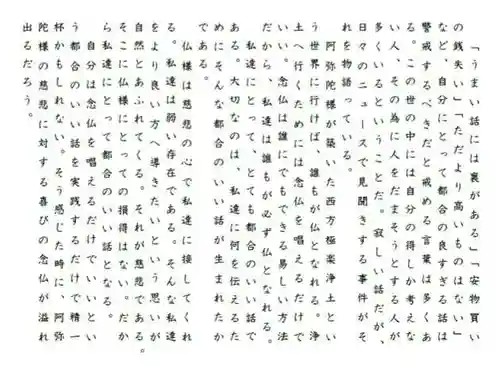 「うまい話には裏がある」「安物買い
の銭失い」「ただより高いものはない」
など、自分にとって都合の良すぎる話は
警戒するべきだと戒める言葉は多くあ
る。この世の中には自分の得しか考えな
い人、その為に人をだまそうとする人が
多くいるということだ。寂しい話だが、
日々のニュースで見聞きする事件がそ
れを物語っている。
阿弥陀様が築いた西方極楽浄土とい
う世界に行けば、誰もが仏となれる。浄
土へ行くためには念仏を唱えるだけで
いい。念仏は誰にでもできる易しい方法
だから、私達は誰もが必ず仏となれる。
私達にとって、とても都合のいい話で
ある。大切なのは、私達に何を伝えるた
めにそんな都合のいい話が生まれたか
である。
仏様は慈悲の心で私達に接してくれ
る。私達は弱い存在である。そんな私達
をより良い方へ導きたいという思いが
自然とあふれてくる。それが慈悲である。
そこに仏様にとっての損得はない。だか
ら私達にとって都合のいい話となる。
自分は念仏を唱えるだけでいいとい
う都合のいい話を実践するだけで精一
杯かもしれない。そう感じた時に、阿弥
陀様の慈悲に対する喜びの念仏が溢れ
出るだろう。